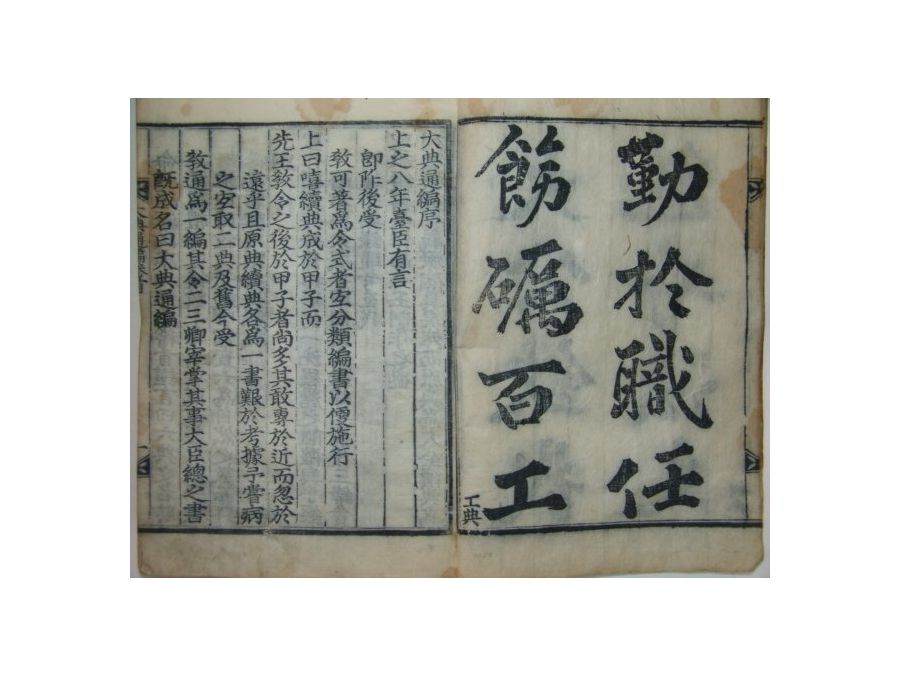 勤扵職任
飭礪百工
工典
大典通編序
上之八年臺臣有言
卽阼後受
敎可著爲令式者宜分類編書以便施行
上曰嘻續典成於甲子而
先王敎令之後於甲子者尙多其敢專於近而忽於
遠乎且原典續典各爲一書艱於考據予嘗病
之宜取二典及舊今受
敎通爲一編其令二三卿宰掌其事大臣總之書
旣成名曰大典通編